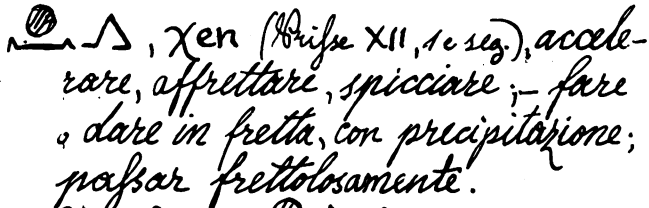 𓐍𓈖𓂻, χen (Prisse XII, 1 e seg.), accele-
rare, affrettare, spicciare; – fare
o dare in fretta, con precipitazione;
passar frettolosamente.